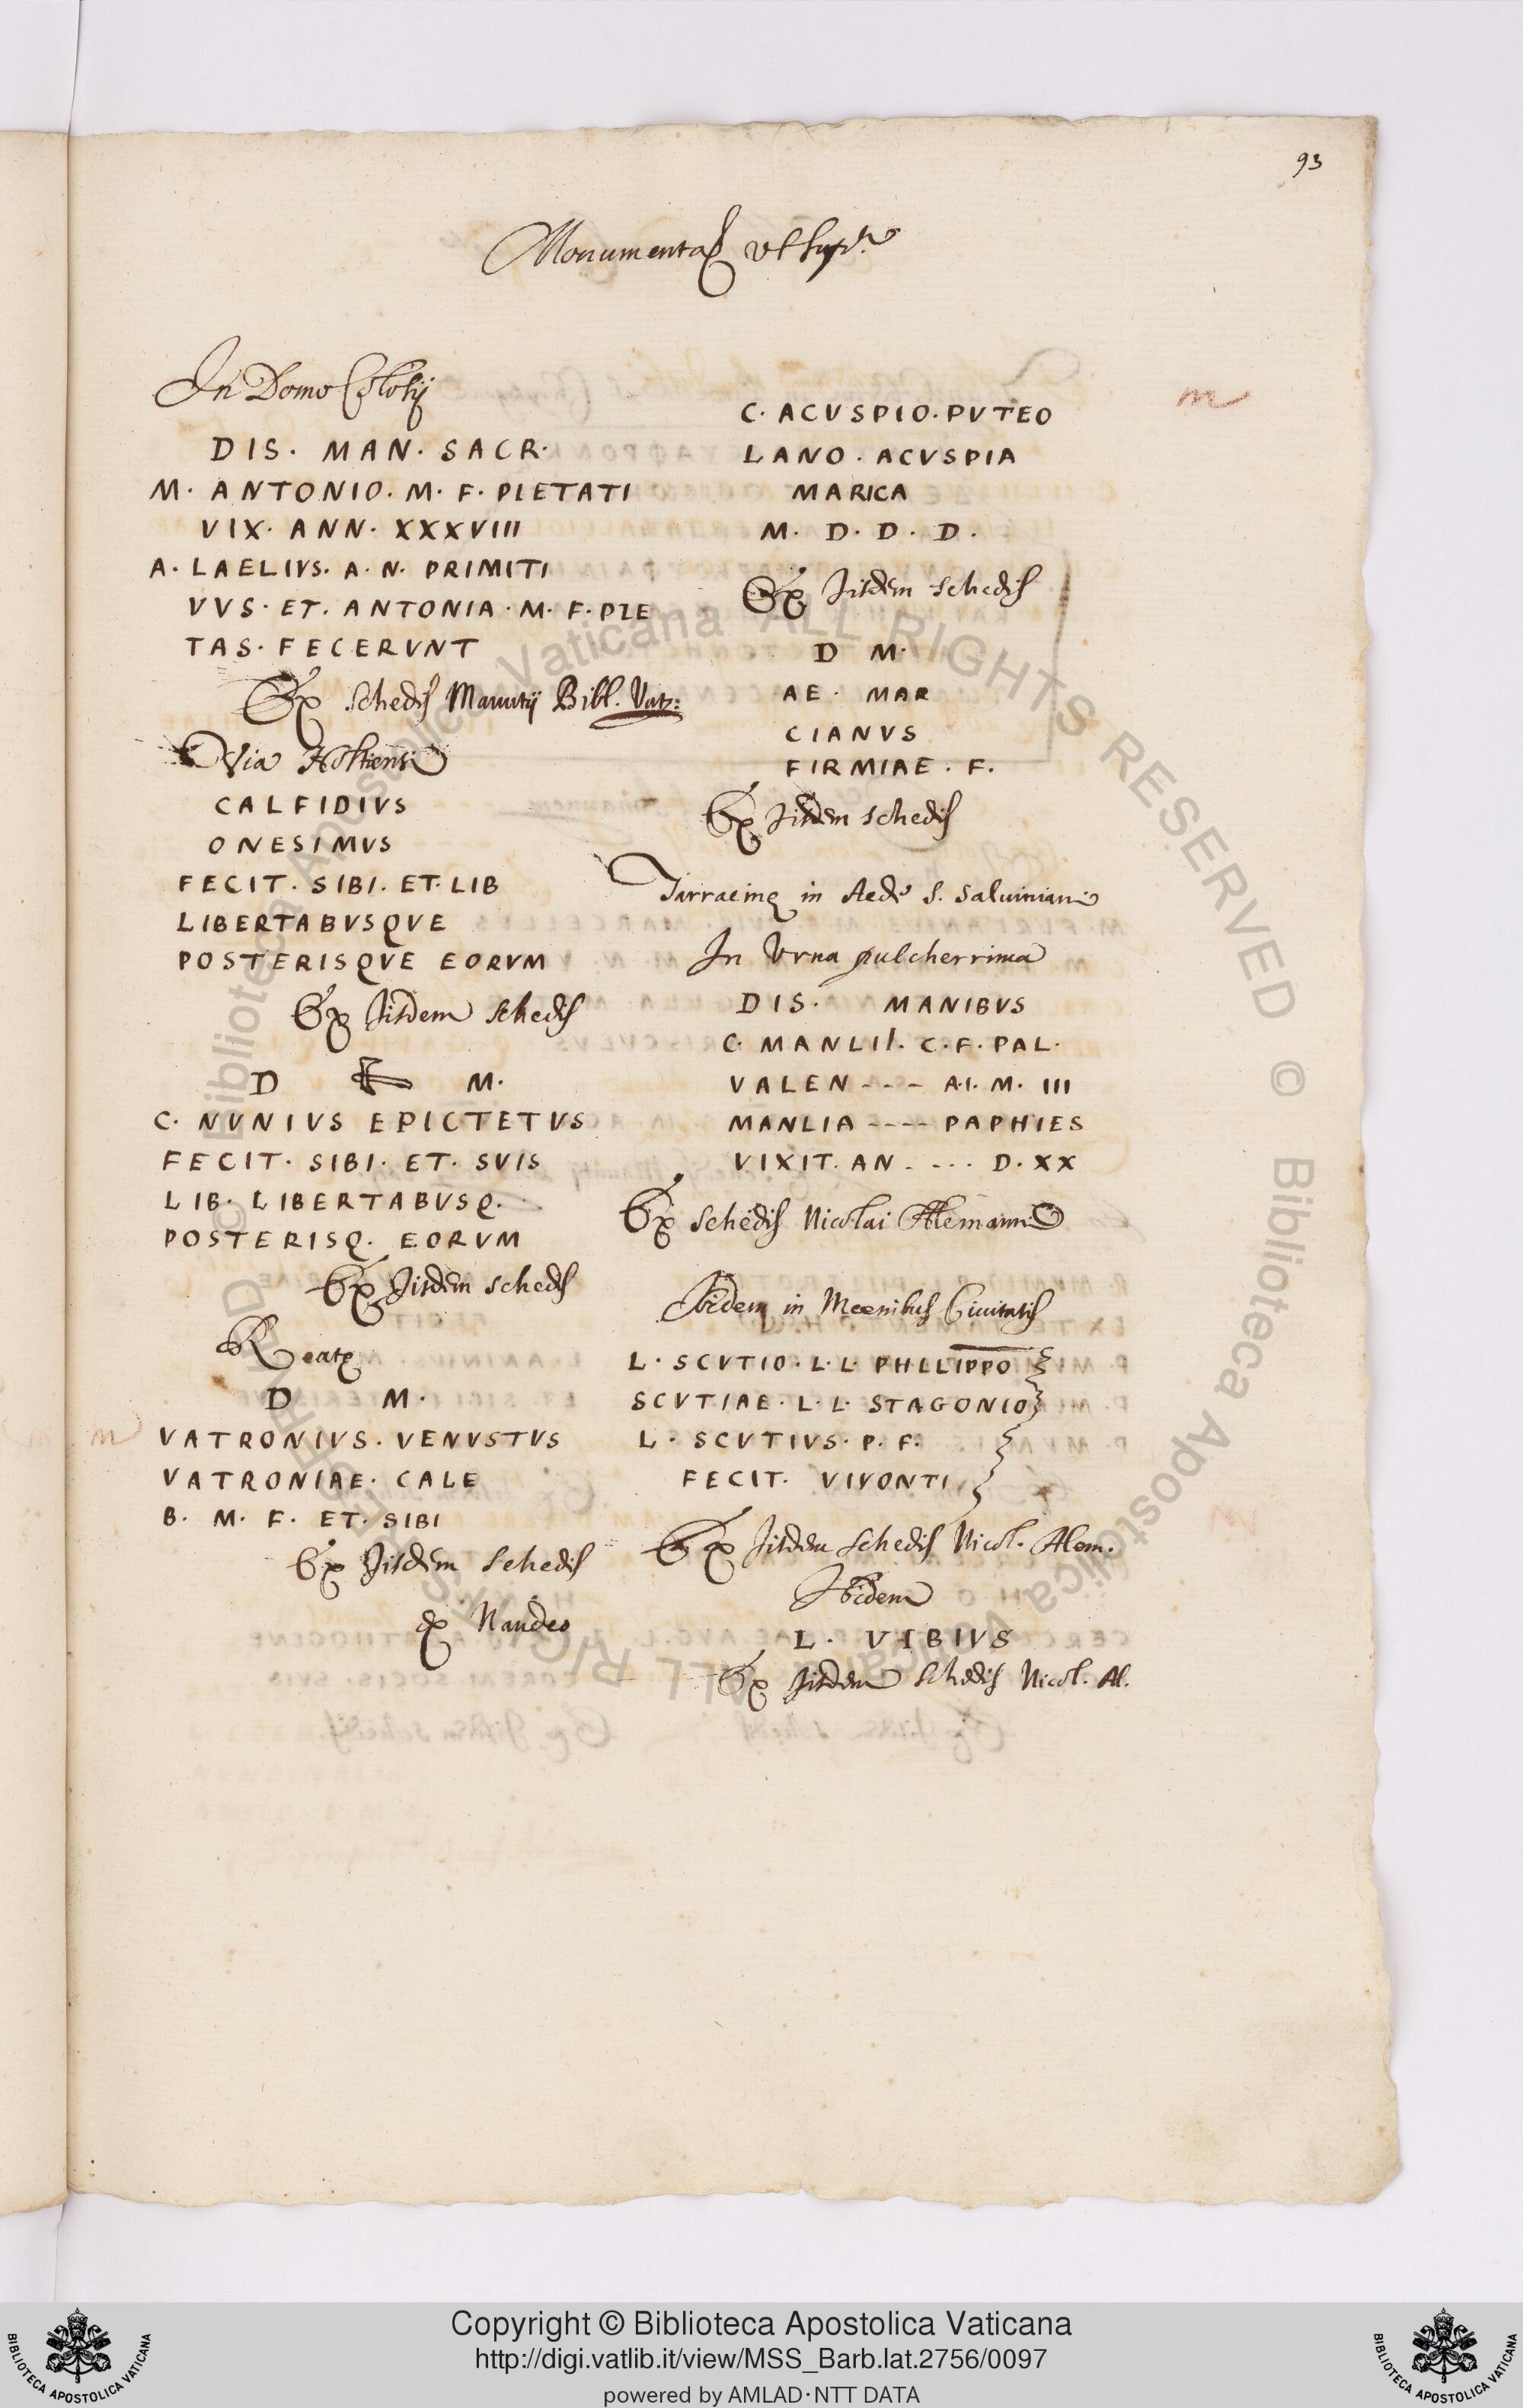 93
Monumenta vt supr.
In Domo Colotij
DIS. MAN. SACR.
M. ANTONIO. M. F. PIETATI
VIX. ANN. XXXVIII
A. LAELIVS. A. N. PRIMITI
VVS. ET. ANTONIA. M. F. PIE
TAS. FECERVNT
Ex schedis Manutij Bibl. Vat:
Via Hostiensi
CALFIDIVS
ONESIMVS
FECIT. SIBI. ET. LIB
LIBERTABVSQVE
POSTERISQVE EORVM
Ex Jisdem schedis
D M.
C. NVNIVS EPICTETVS
FECIT. SIBI. ET. SVIS
LIB. LIBERTABVSQ.
POSTERISQ. EORVM
Ex Jisdem schedis
Reate
D M.
m
VATRONIVS. VENVSTVS
VATRONIAE. CALE
B. M. F. ET. SIBI
Ex Jisdem schedis
ex Naudeo
m
C. ACVSPIO. PVTEO
LANO. ACVSPIA
MARICA
M. D. D. D.
Ex Jisdem schedis
D M.
AE. MAR
CIANVS
FIRMIAE. F.
Ex Jisdem schedis
Tarracinę in Aede S. Saluiniani
In Vrna pulcherrima
DIS. MANIBVS
C. MANLII. C. F. PAL.
VALEN - - - A.I. M. III
MANLIA - - - - PAPHIES
VIXIT. AN - - - - D. XX
Ex schedis Nicolai Alemanni
Ibidem in Meenibus Ciuitatis
L. SCVTIO. L. L. PHLLIPPO
SCVTIAE. L. L. STAGONIO
L. SCVTIVS. P. F.
FECIT. VIVONTI
Ex Jisdem schedis Nicol. Alem.
Ibidem
L. VIBIVS
Ex Jisdem schedis Nicol. Al.
Copyright © Biblioteca Apostolica Vaticana
http://digi.vatlib.it/view/MSS_Barb.lat.2756/0097
powered by AMLAD·NTT DATA